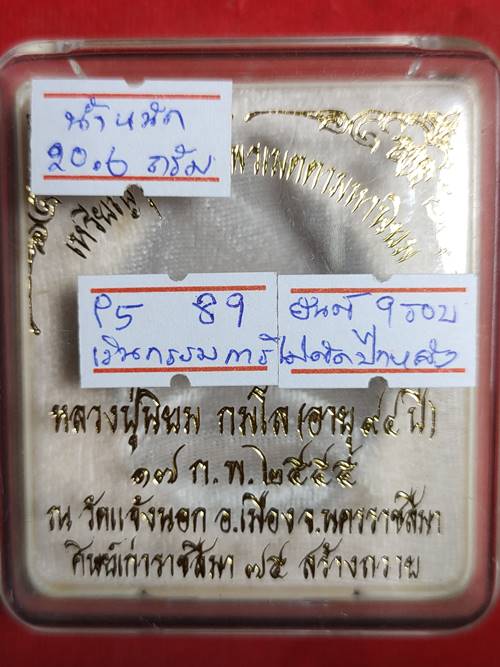 น้ำหนัก
20.6 กรัม
เหรียญ
พรเมตตามหานิยม
P5 89
เงินกรรมการ
ยันต์ 9 รอบ
ไม่ตัดปีกหลัง
หลวงปู่นิยม กมโล (อายุ ๙๔ ปี)
๑๗ ก.พ. ๒๕๕๕
ณ วัดแจ้งนอก อ.เมือง จ.นครราชสีมา
ศิษย์เก่าราชสีมา ๓๕ สร้างถวาย